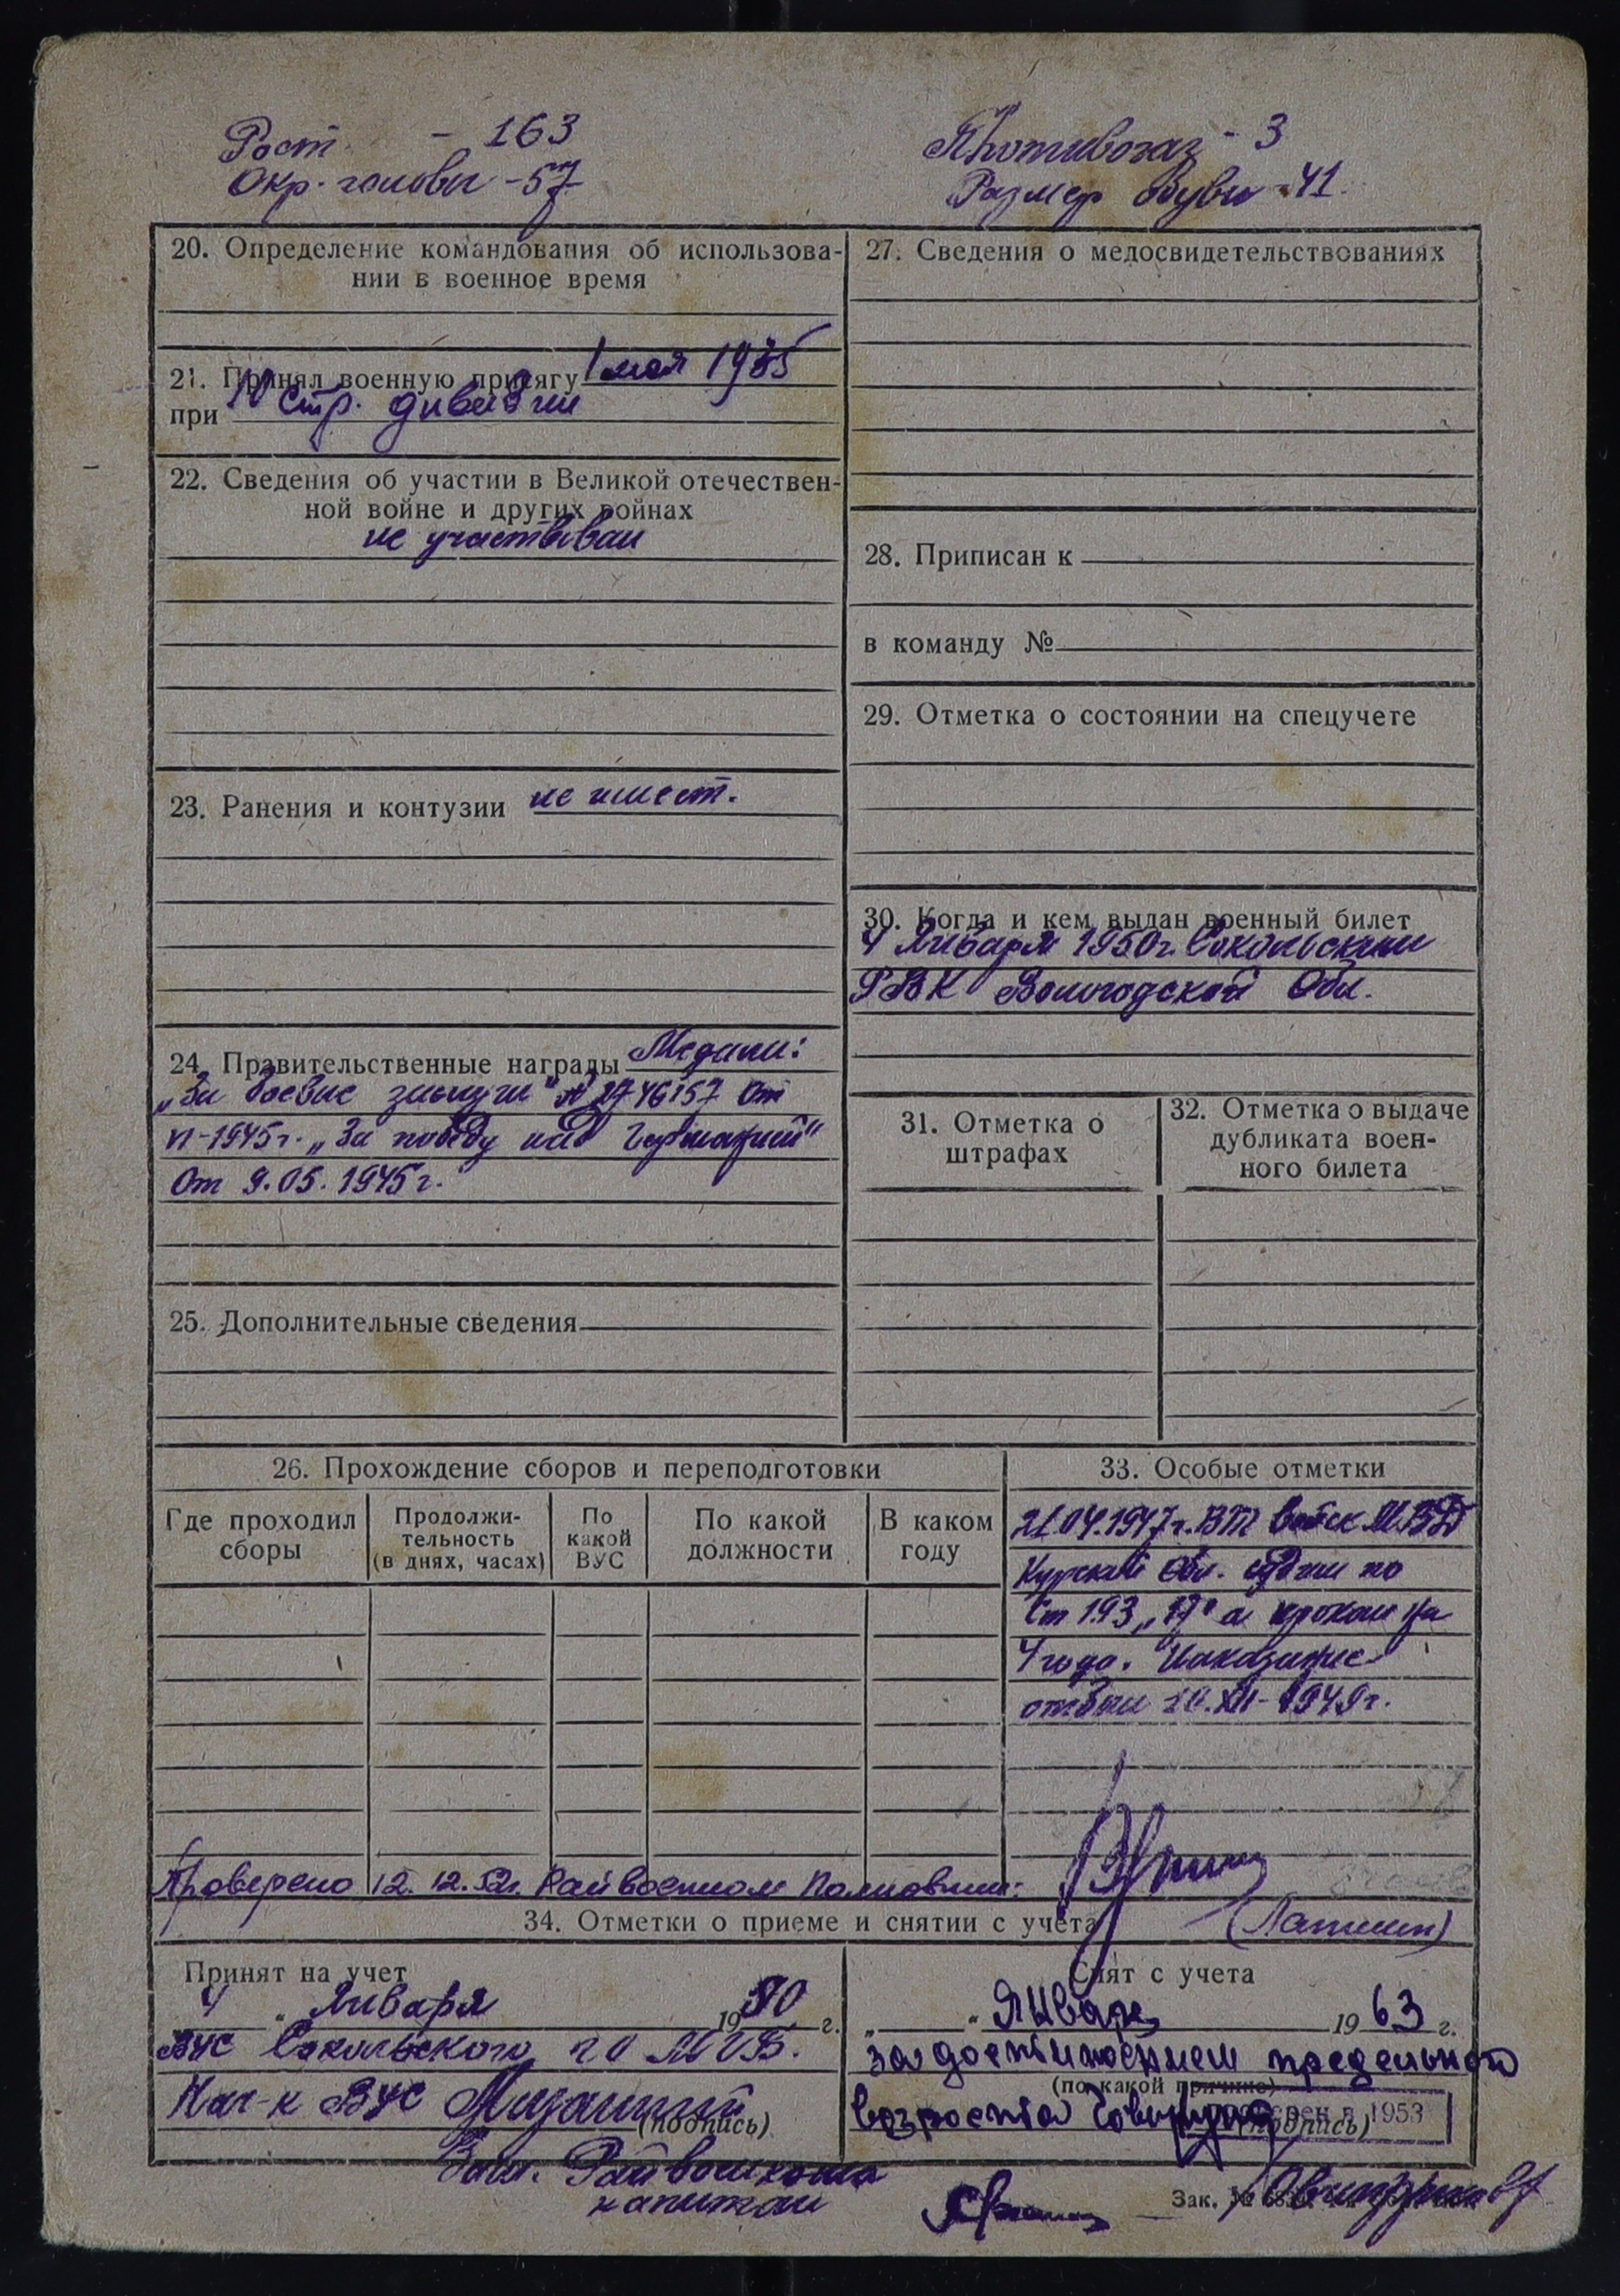 Рост - 163
Окр. головы - 57
Противогаз - 3
Размер обуви - 41.
20. Определение командования об использова-
нии в военное время
21. Принял военную присягу 1 мая 1935
при 10 стр. дивизии
22. Сведения об участии в Великой отечествен-
ной войне и других войнах
не участвовал
23. Ранения и контузии не имеет.
24. Правительственные награды Медали:
„За боевые заслуги" № 2746157 от
1945 г. „За победу над Германией"
От 9.05.1945 г.
25. Дополнительные сведения
27. Сведения о медосвидетельствованиях
28. Приписан к
в команду №
29. Отметка о состоянии на спецучете
30. Когда и кем выдан военный билет
4 Января 1950 г. Сокольским
РВК Вологодской Обл.
31. Отметка о
штрафах
32. Отметка о выдаче
дубликата воен-
ного билета
26. Прохождение сборов и переподготовки
Где проходил
сборы
Продолжи-
тельность
(в днях, часах)
По
какой
ВУС
По какой
должности
В каком
году
33. Особые отметки
21.04.1947 г. ВТ войск МВД
Курской обл. судим по
Ст 193 „17" а сроком на
4 года. Наказание
отбыл 10.XII-1949 г.
Проверено 12.12.52 г. Райвоенком Полковник:
(Лапшин)
34. Отметки о приеме и снятии с учета
Принят на учет
„4" Января 1950 г.
ВУС Сокольского
Нач-к ВУС
(подпись)
Снят с учета
„ " Январь 1963 г.
за достижением предельного
(по какой причине)
возраста
(подпись)
1953
Райвоенкома
капитан
Зак. №